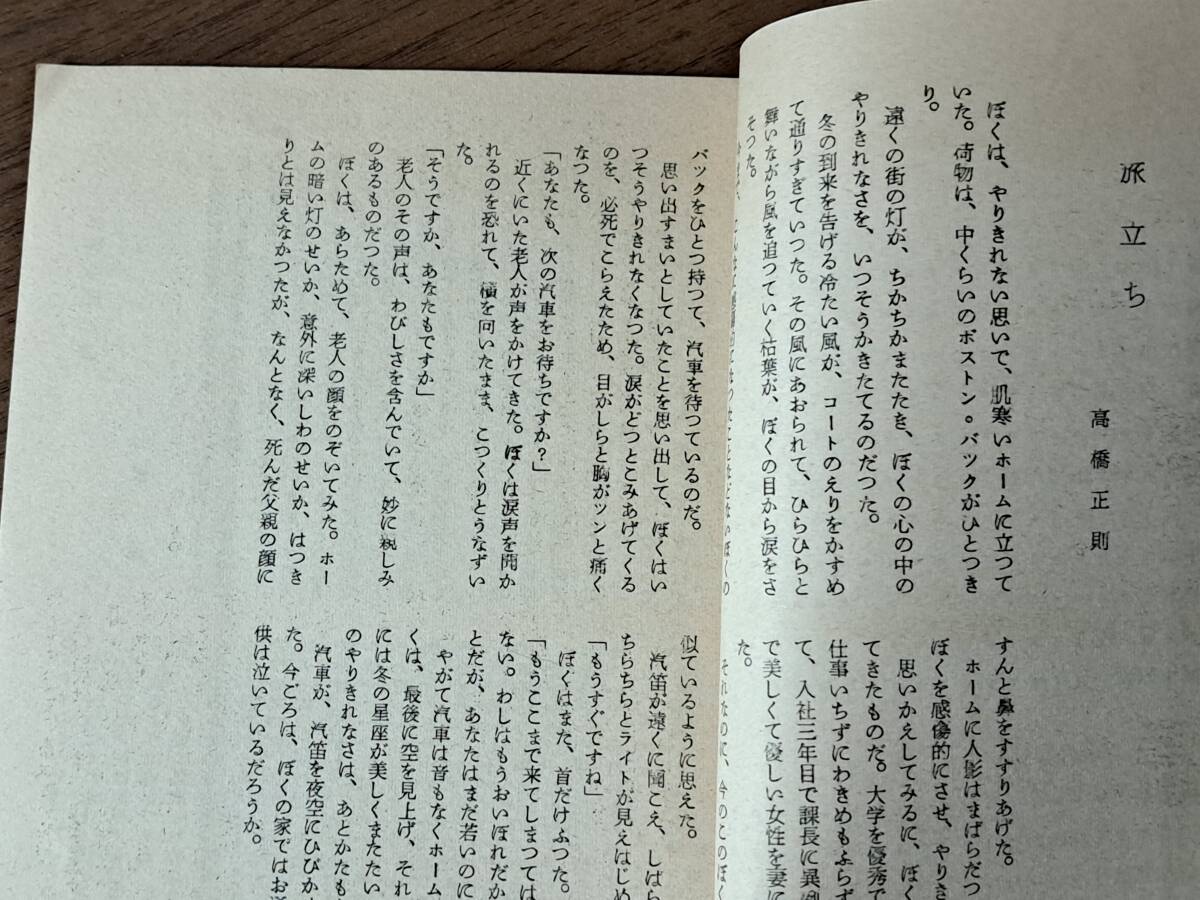 旅立ち
高橋正則
ぼくは、やりきれない思いで、肌寒いホームに立つて
いた。荷物は、中くらいのボストン。バックがひとつき
り。
遠くの街の灯が、ちかちかまたたき、ぼくの心の中の
やりきれなさを、いつそうかきたてるのだつた。
冬の到来を告げる冷たい風が、コートのえりをかすめ
て通りすぎていつた。その風にあおられて、ひらひらと
舞いながら風を追つていく枯葉が、ぼくの目から涙をさ
そつた。
すんと鼻をすすりあげた。
ホームに人影はまばらだつ
ぼくを感傷的にさせ、やりき
思いかえしてみるに、ぼく
てきたものだ。大学を優秀で
仕事いちずにわきめもふらず
て、入社三年目で課長に異例
で美しくて優しい女性を妻に
た。
それなのに、今のこのぼく
バックをひとつ持つて、汽車を待つているのだ。
思い出すまいとしていたことを思い出して、ぼくはい
つそうやりきれなくなつた。涙がどつとこみあげてくる
のを、必死でこらえたため、目がしらと胸がツンと痛く
なつた。
「あなたも、次の汽車をお待ちですか?」
近くにいた老人が声をかけてきた。ぼくは涙声を聞か
れるのを恐れて、横を向いたまま、こつくりとうなずい
た。
「そうですか、あなたもですか」
老人のその声は、わびしさを含んでいて、妙に親しみ
のあるものだつた。
ぼくは、あらためて、老人の顔をのぞいてみた。ホー
ムの暗い灯のせいか、意外に深いしわのせいか、はつき
りとは見えなかつたが、なんとなく、死んだ父親の顔に
似ているように思えた。
汽笛が遠くに聞こえ、しばら
ちらちらとライトが見えはじめ
「もうすぐですね」
ぼくはまた、首だけふつた。
「もうここまで来てしまつては
ない。わしはもうおいぼれだか
とだが、あなたはまだ若いのに
やがて汽車は音もなくホーム
くは、最後に空を見上げ、それ
には冬の星座が美しくまたたい
のやりきれなさは、あとかたも
汽車が、汽笛を夜空にひびか
た。今ごろは、ぼくの家ではお
供は泣いているだろうか。